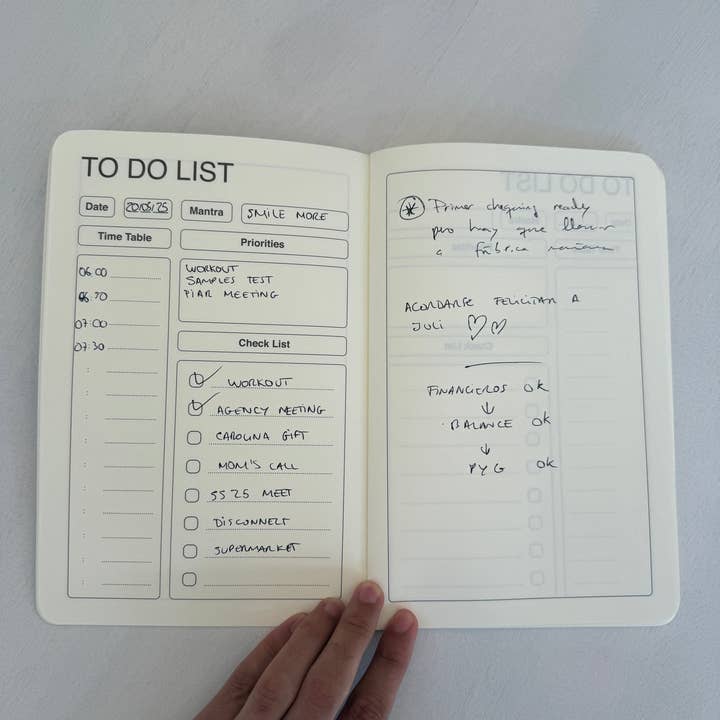 TO DO LIST
Date 20/05/25 Mantra SMILE MORE
Time Table
06:00
06:30
07:00
07:30
Priorities
WORKOUT
SAMPLES TEST
MEETING
Check List
WORKOUT
AGENCY MEETING
CAROLINA GIFT
MOM'S CALL
SS25 MEET
DISCONNECT
SUPERMARKET
Primer ready
pero hay que llevar
a fábrica mañana
ACORDARSE FELICITAR A
JULI
FINANCIEROS OK
BALANCE OK
PYG OK